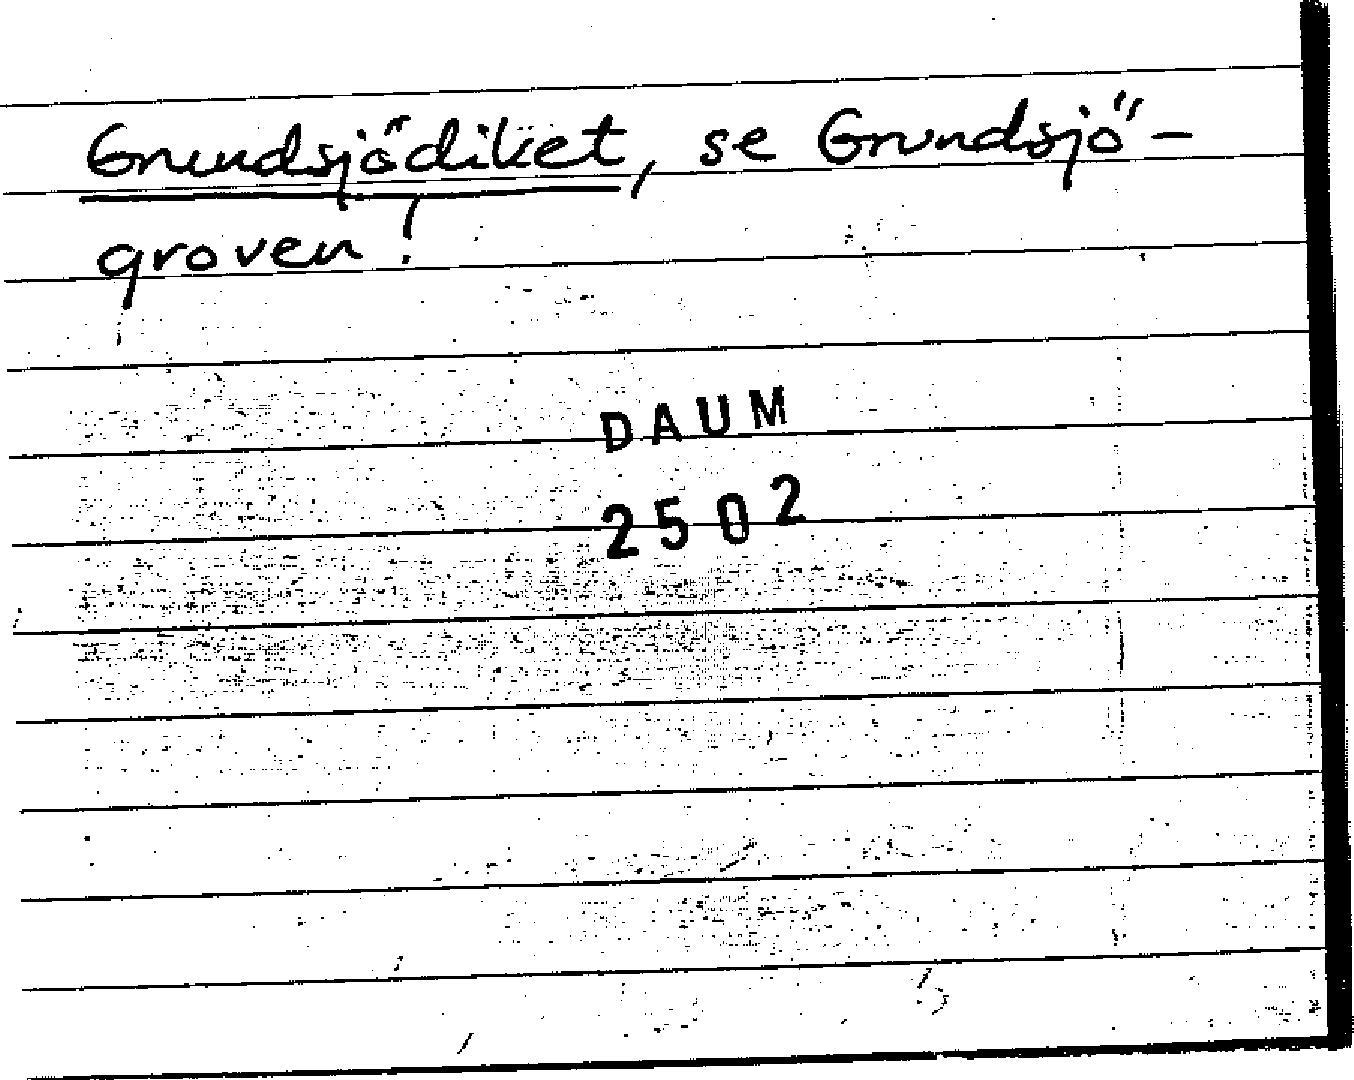 Grundsjödiket, se Grundsjö-
groven!
DAUM
2502